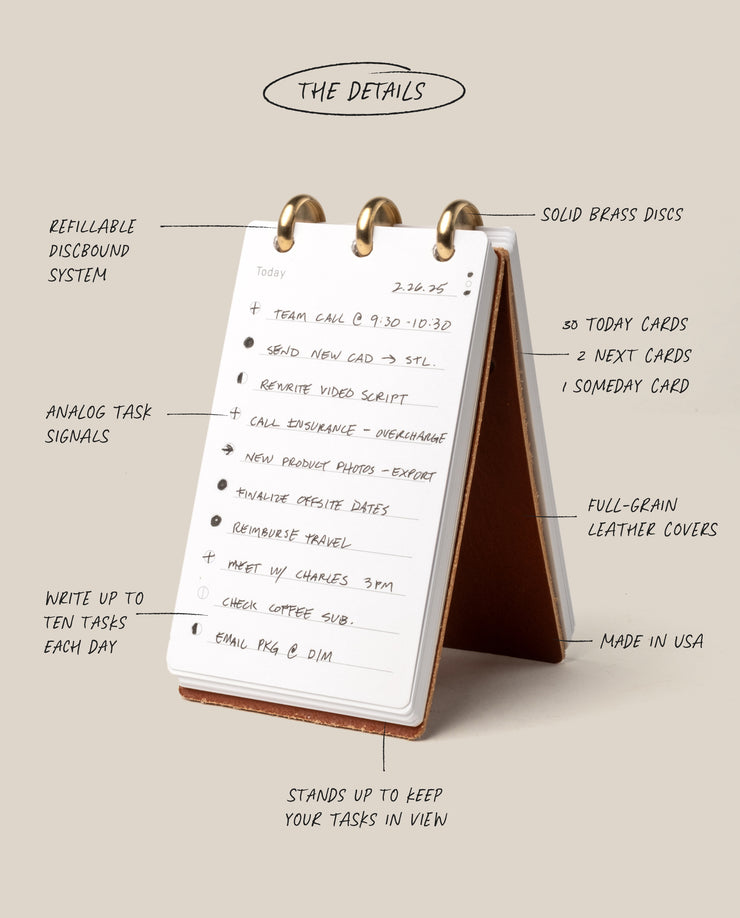 THE DETAILS
REFILLABLE
DISCBOUND
SYSTEM
SOLID BRASS DISCS
Today
2.26.25
TEAM CALL @ 9:30-10:30
SEND NEW CAD → STL.
REWRITE VIDEO SCRIPT
CALL INSURANCE - OVERCHARGE
NEW PRODUCT PHOTOS - EXPORT
FINALIZE OFFSITE DATES
REIMBURSE TRAVEL
MEET W/ CHARLES 3PM
CHECK COFFEE SUB.
EMAIL PKG @ DIM
30 TODAY CARDS
2 NEXT CARDS
1 SOMEDAY CARD
ANALOG TASK
SIGNALS
FULL-GRAIN
LEATHER COVERS
WRITE UP TO
TEN TASKS
EACH DAY
MADE IN USA
STANDS UP TO KEEP
YOUR TASKS IN VIEW